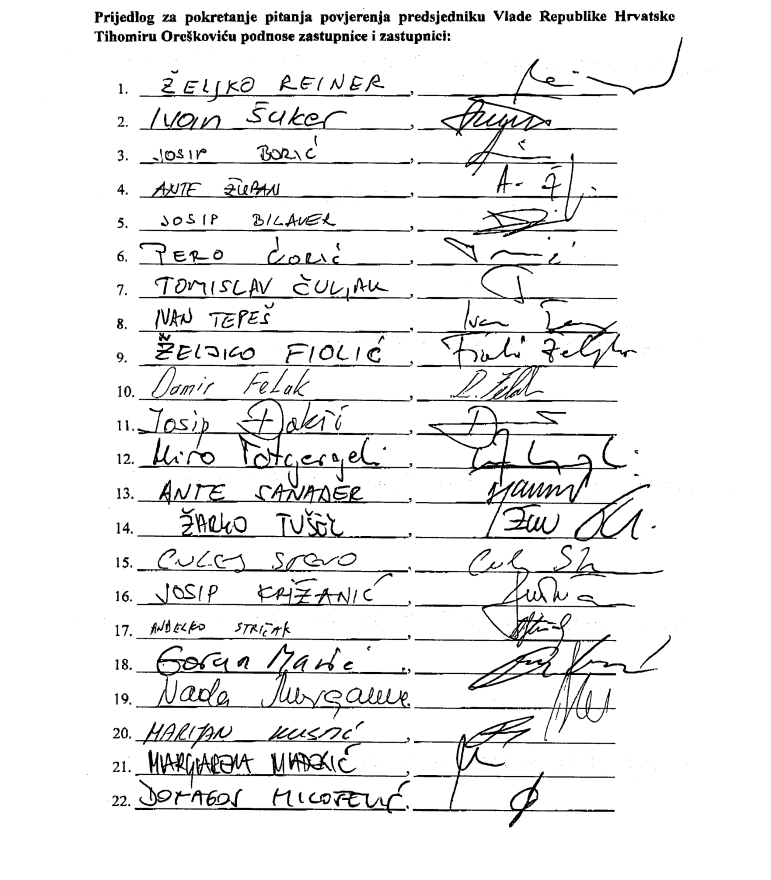 Prijedlog za pokretanje pitanja povjerenja predsjedniku Vlade Republike Hrvatske
Tihomiru Oreškoviću podnose zastupnice i zastupnici:
1. ŽELJKO REINER,
2. Ivan Šuker,
3. JOSIP BORIĆ,
4. ANTE ŽUPAN, A. Ž
5. JOSIP BILAVER,
6. PERO ĆORIĆ,
7. TOMISLAV ČULJAK,
8. IVAN TEPEŠ, Ivan
9. ŽELJKO FIOLIĆ, Fiolić Željko
10. Damir Felak, D. Felak
11. Josip Đakić,
12. Miro Totgergeli,
13. ANTE SANADER,
14. ŽARKO TUŠEK,
15. CULEJ STEVO,
16. JOSIP KRIŽANIĆ,
17. ANĐELKO STRIČAK,
18. Goran Marić,
19. Nada Murganić,
20. MARIJAN KUSTIĆ,
21. MARGARETA MAĐERIĆ,
22. DOMAGOJ MILOŠEVIĆ,